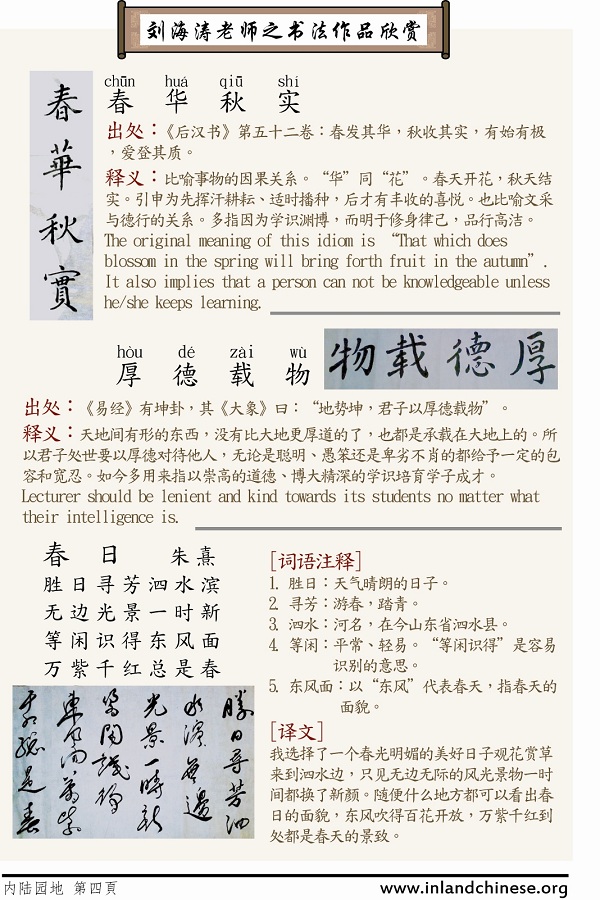 刘海涛老师之书法作品欣赏
春華秋實
chūn huá qiū shí
春 华 秋 实
出处：《后汉书》第五十二卷：春发其华，秋收其实，有始有极
，爱登其质。
释义：比喻事物的因果关系。“华”同“花”。春天开花，秋天结
实。引申为先挥汗耕耘、适时播种，后才有丰收的喜悦。也比喻文采
与德行的关系。多指因为学识渊博，而明于修身律己，品行高洁。
The original meaning of this idiom is “That which does
blossom in the spring will bring forth fruit in the autumn”.
It also implies that a person can not be knowledgeable unless
he/she keeps learning.
hòu dé zài wù
厚 德 载 物
物载德厚
出处：《易经》有坤卦，其《大象》曰：“地势坤，君子以厚德载物”。
释义：天地间有形的东西，没有比大地更厚道的了，也都是承载在大地上的。所
以君子处世要以厚德对待他人，无论是聪明、愚笨还是卑劣不肖的都给予一定的包
容和宽忍。如今多用来指以崇高的道德、博大精深的学识培育学子成才。
Lecturer should be lenient and kind towards its students no matter what
their intelligence is.
春 日 朱熹
胜日寻芳泗水滨
无边光景一时新
等闲识得东风面
万紫千红总是春
勝日尋芳泗
水濱無邊
光景一時新
等閒識得
東風面萬紫
千红總是春
[词语注释]
1. 胜日：天气晴朗的日子。
2. 寻芳：游春，踏青。
3. 泗水：河名，在今山东省泗水县。
4. 等闲：平常、轻易。“等闲识得”是容易
识别的意思。
5. 东风面：以“东风”代表春天，指春天的
面貌。
[译文]
我选择了一个春光明媚的美好日子观花赏草
来到泗水边，只见无边无际的风光景物一时
间都换了新颜。随便什么地方都可以看出春
日的面貌，东风吹得百花开放，万紫千红到
处都是春天的景致。
内陆园地 第四頁
www.inlandchinese.org